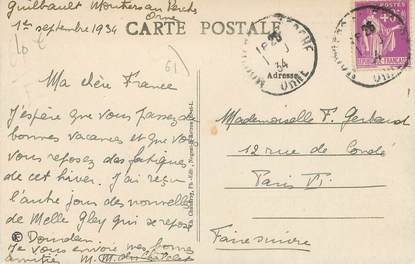 Guilbault Moutiers au Perche
Orne
1er septembre 1934
CARTE POSTALE
Adresse
10 €
61
Ma chère France
J'espère que vous passez de
bonnes vacances et que vous
vous reposez des fatigues
de cet hiver. J'ai reçu
l'autre jour des nouvelles
de Melle Gley qui se repose
Dourdan.
Je vous envoie mes bonnes
amitiés M.
Mademoiselle F. Gerbaud
12 rue de Condé
Paris VI.
Faire suivre
ORNE
34